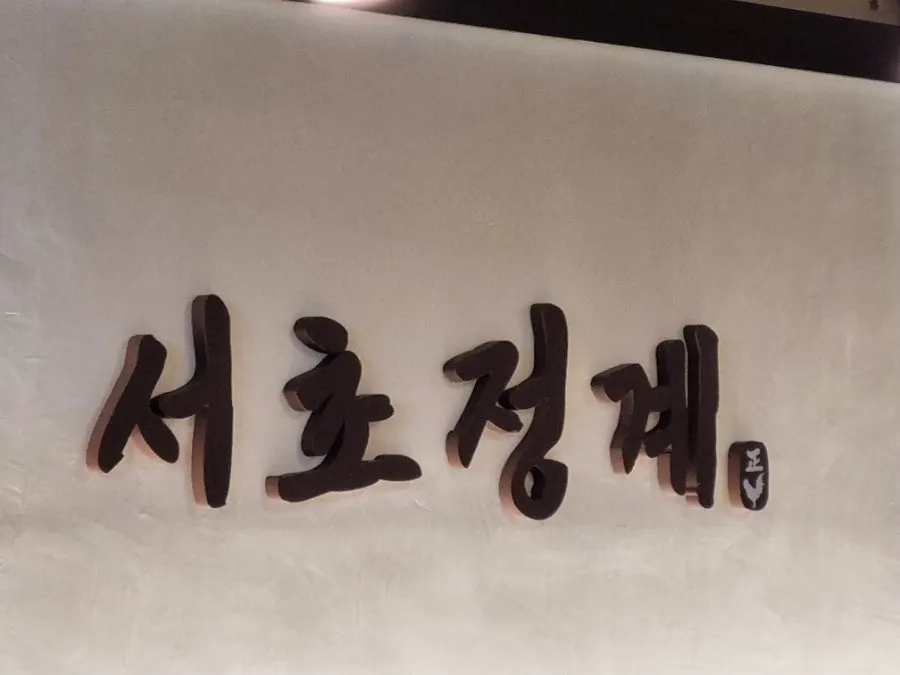 서초정계